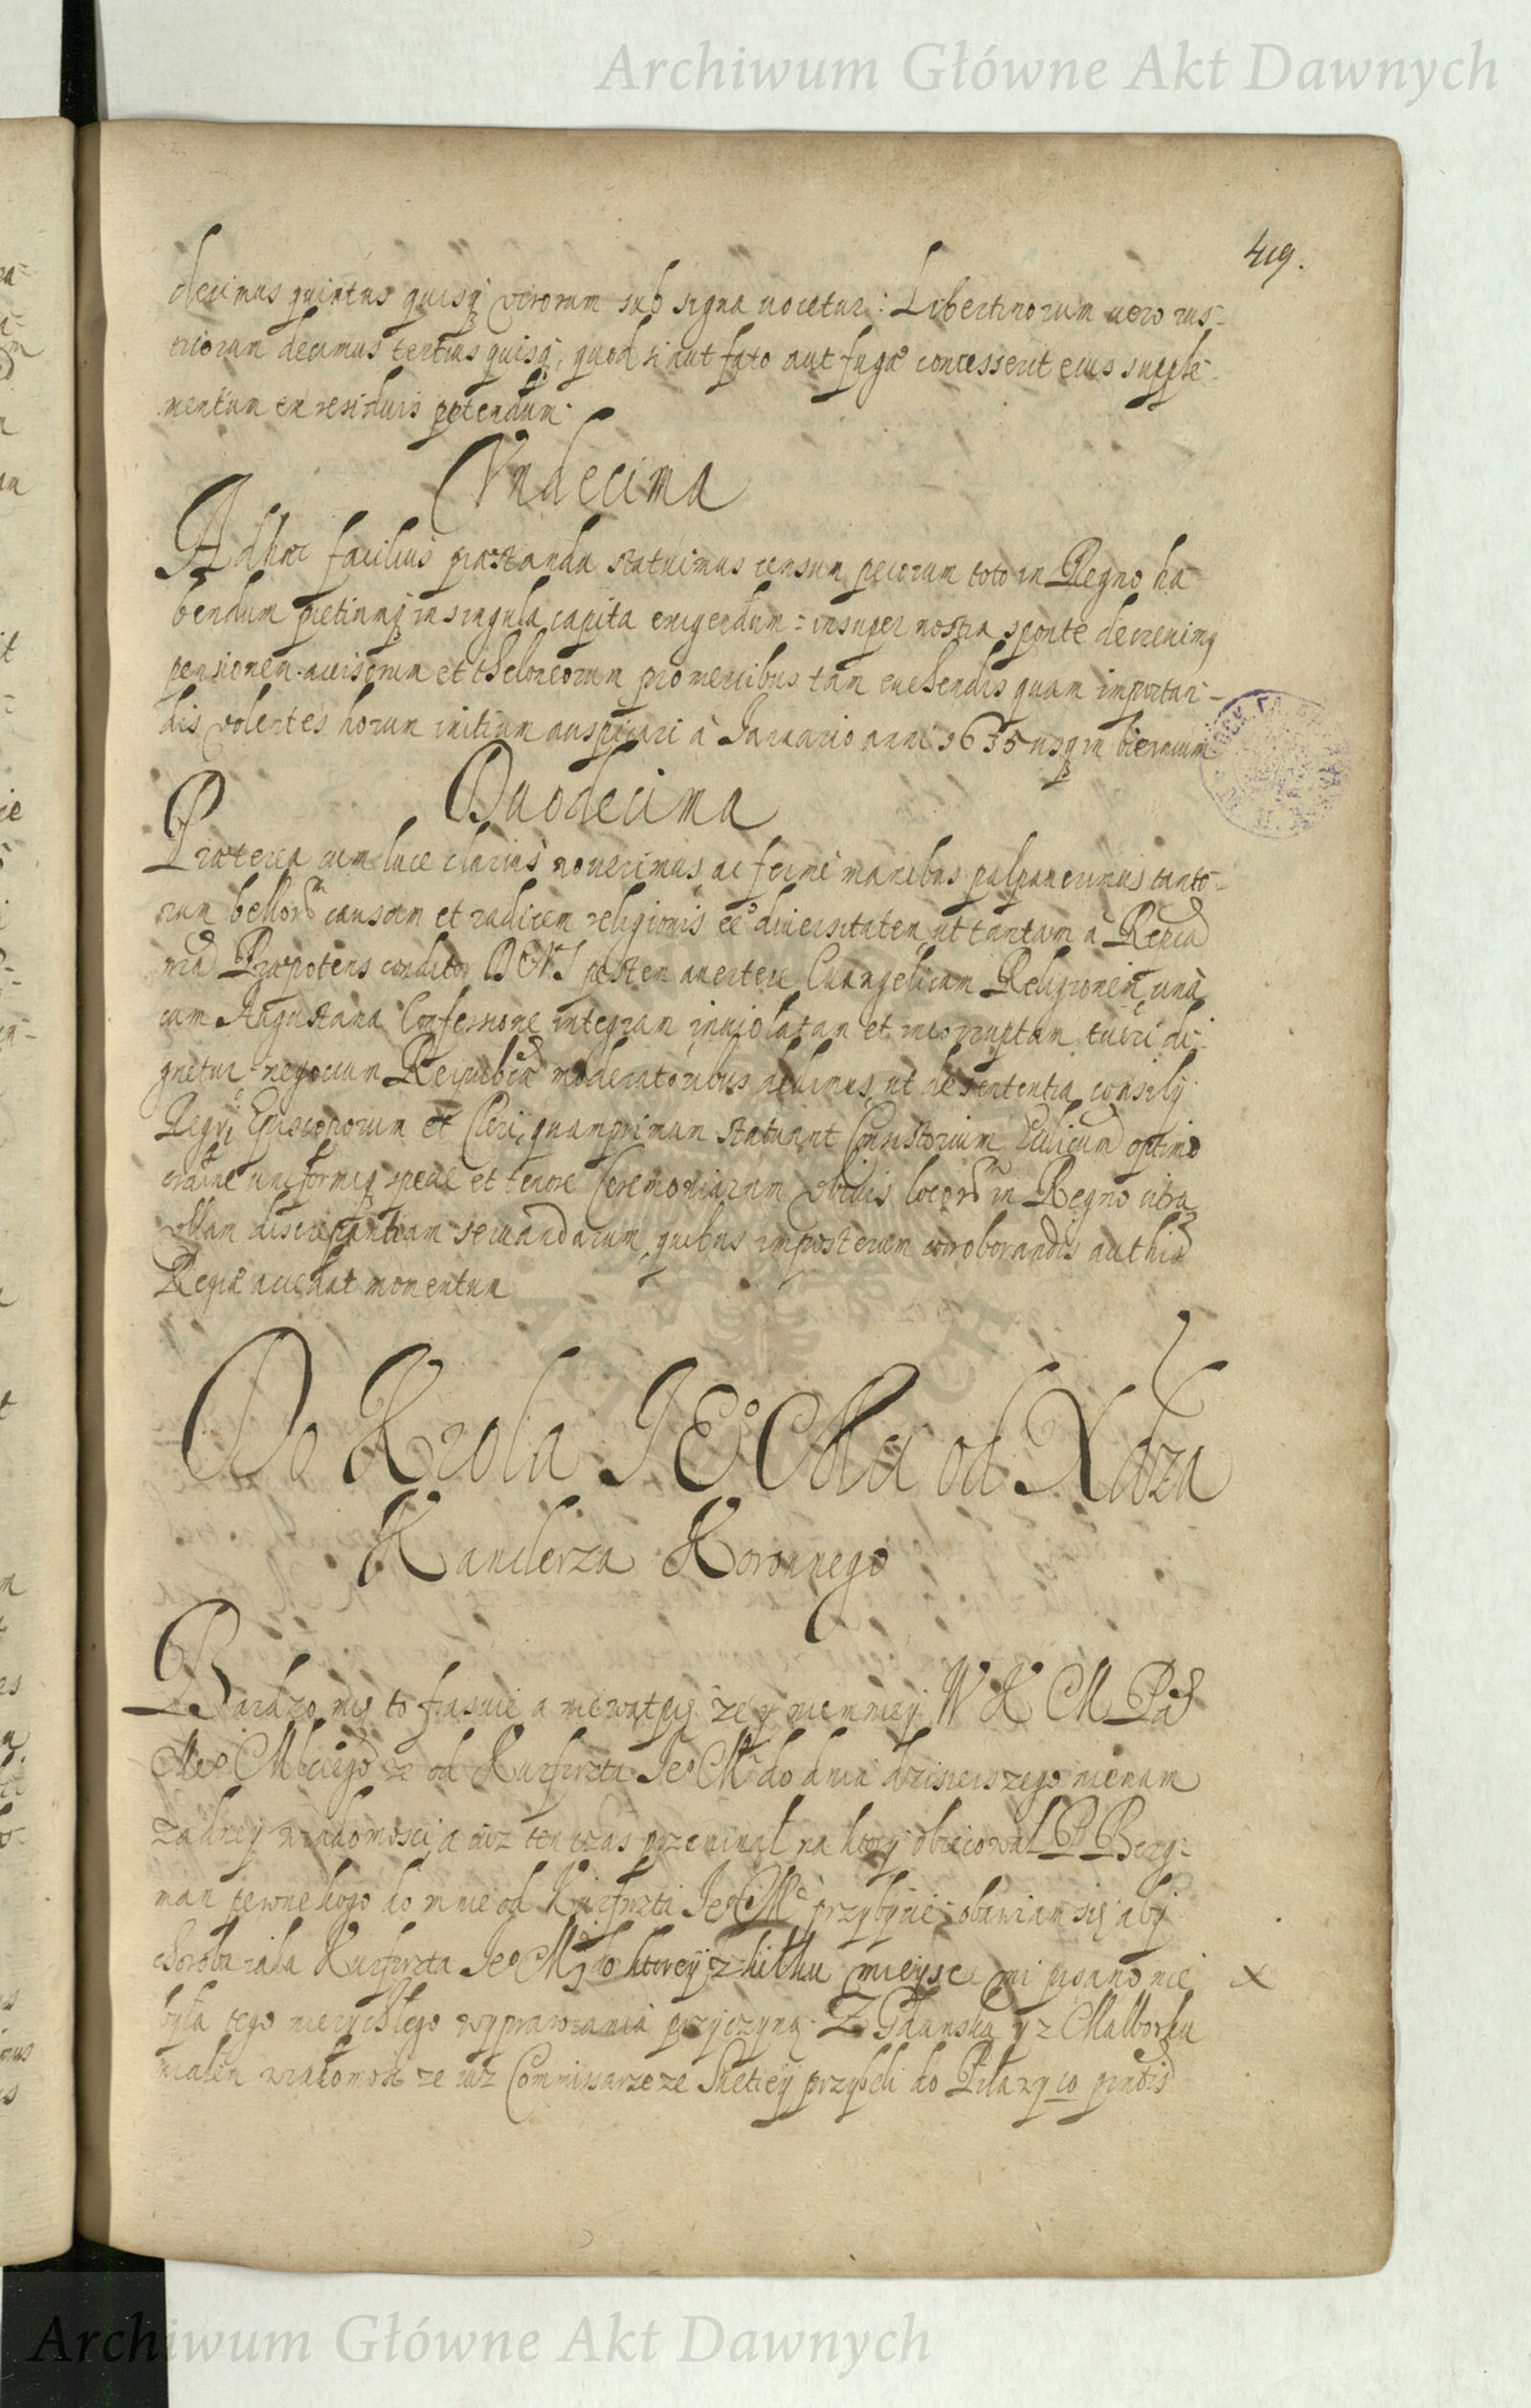 Archiwum Główne Akt Dawnych
419.
decimus quintus quisq virorum sub signa uocetur: Libertinorum uero rus-
ticorum decimus tertius quisq, quod si aut fato aut fugæ concesserit eius supple-
mentum ex residuis petendum.
Vndecima
Adhæc facilius præstanda statuimus censum pecorum toto in Regno ha
bendum pretiumq in singula capita exigendum: insuper nostra sponte decreuimq
pensionem accisorum et theloneorum pro mercibus tam euehendis quam importan-
dis volentes horum initium auspicari à Januario anni 1635 usq in biennium
Duodecima
Præterea cum luce clarius nouerimus ac fermè manibus palpauerimus tanto-
rum bellorum causam et radicem religionis eē diuersitatem ut tantam à Repca
nra Præpotens conditor DEVS pestem auertere Euangelicam Religionem unà
cum Augustana Confessione integram inuiolatam et incorruptam tueri di-
gnetur negocium Reipublcæ moderatoribus dedimus, ut de sententia consilij
Regij Episcoporum et Cleri, quamprimum statuant Consistorium optimo
ordine uniformiq specie et tenore Ceremoniarum obiuis locorum in Regno citra
ullam discrepantiam seruandarum, quibus imposterum corroborandis
Regiæ accedat momentum
Do Krola JE° Mći od Xdza
Kanclerza Koronnego
Bardzo mię to frasuie a niewątpię że y niemniey W K M Pa
Me° Mściego że od Kurfirszta Je° Mći do dnia dzisieiszego niemam
żadney wiadomosci, a iuż ten czas przeminął na ktory obiecował P Berg-
man pewne kogo do mnie od Kurfirszta Je° Mći przybycie obawiam się aby
choroba Kurfirszta Je° Mći do ktorey z kilku mieysc mi pisano nie x
była tego nierychłego wyprawiania przyczyną. Z Gdanska y z Malborku
miałem wiadomość że iuż Commissarze ze Szwetiey przybeli do Pilaw y co
Archiwum Główne Akt Dawnych